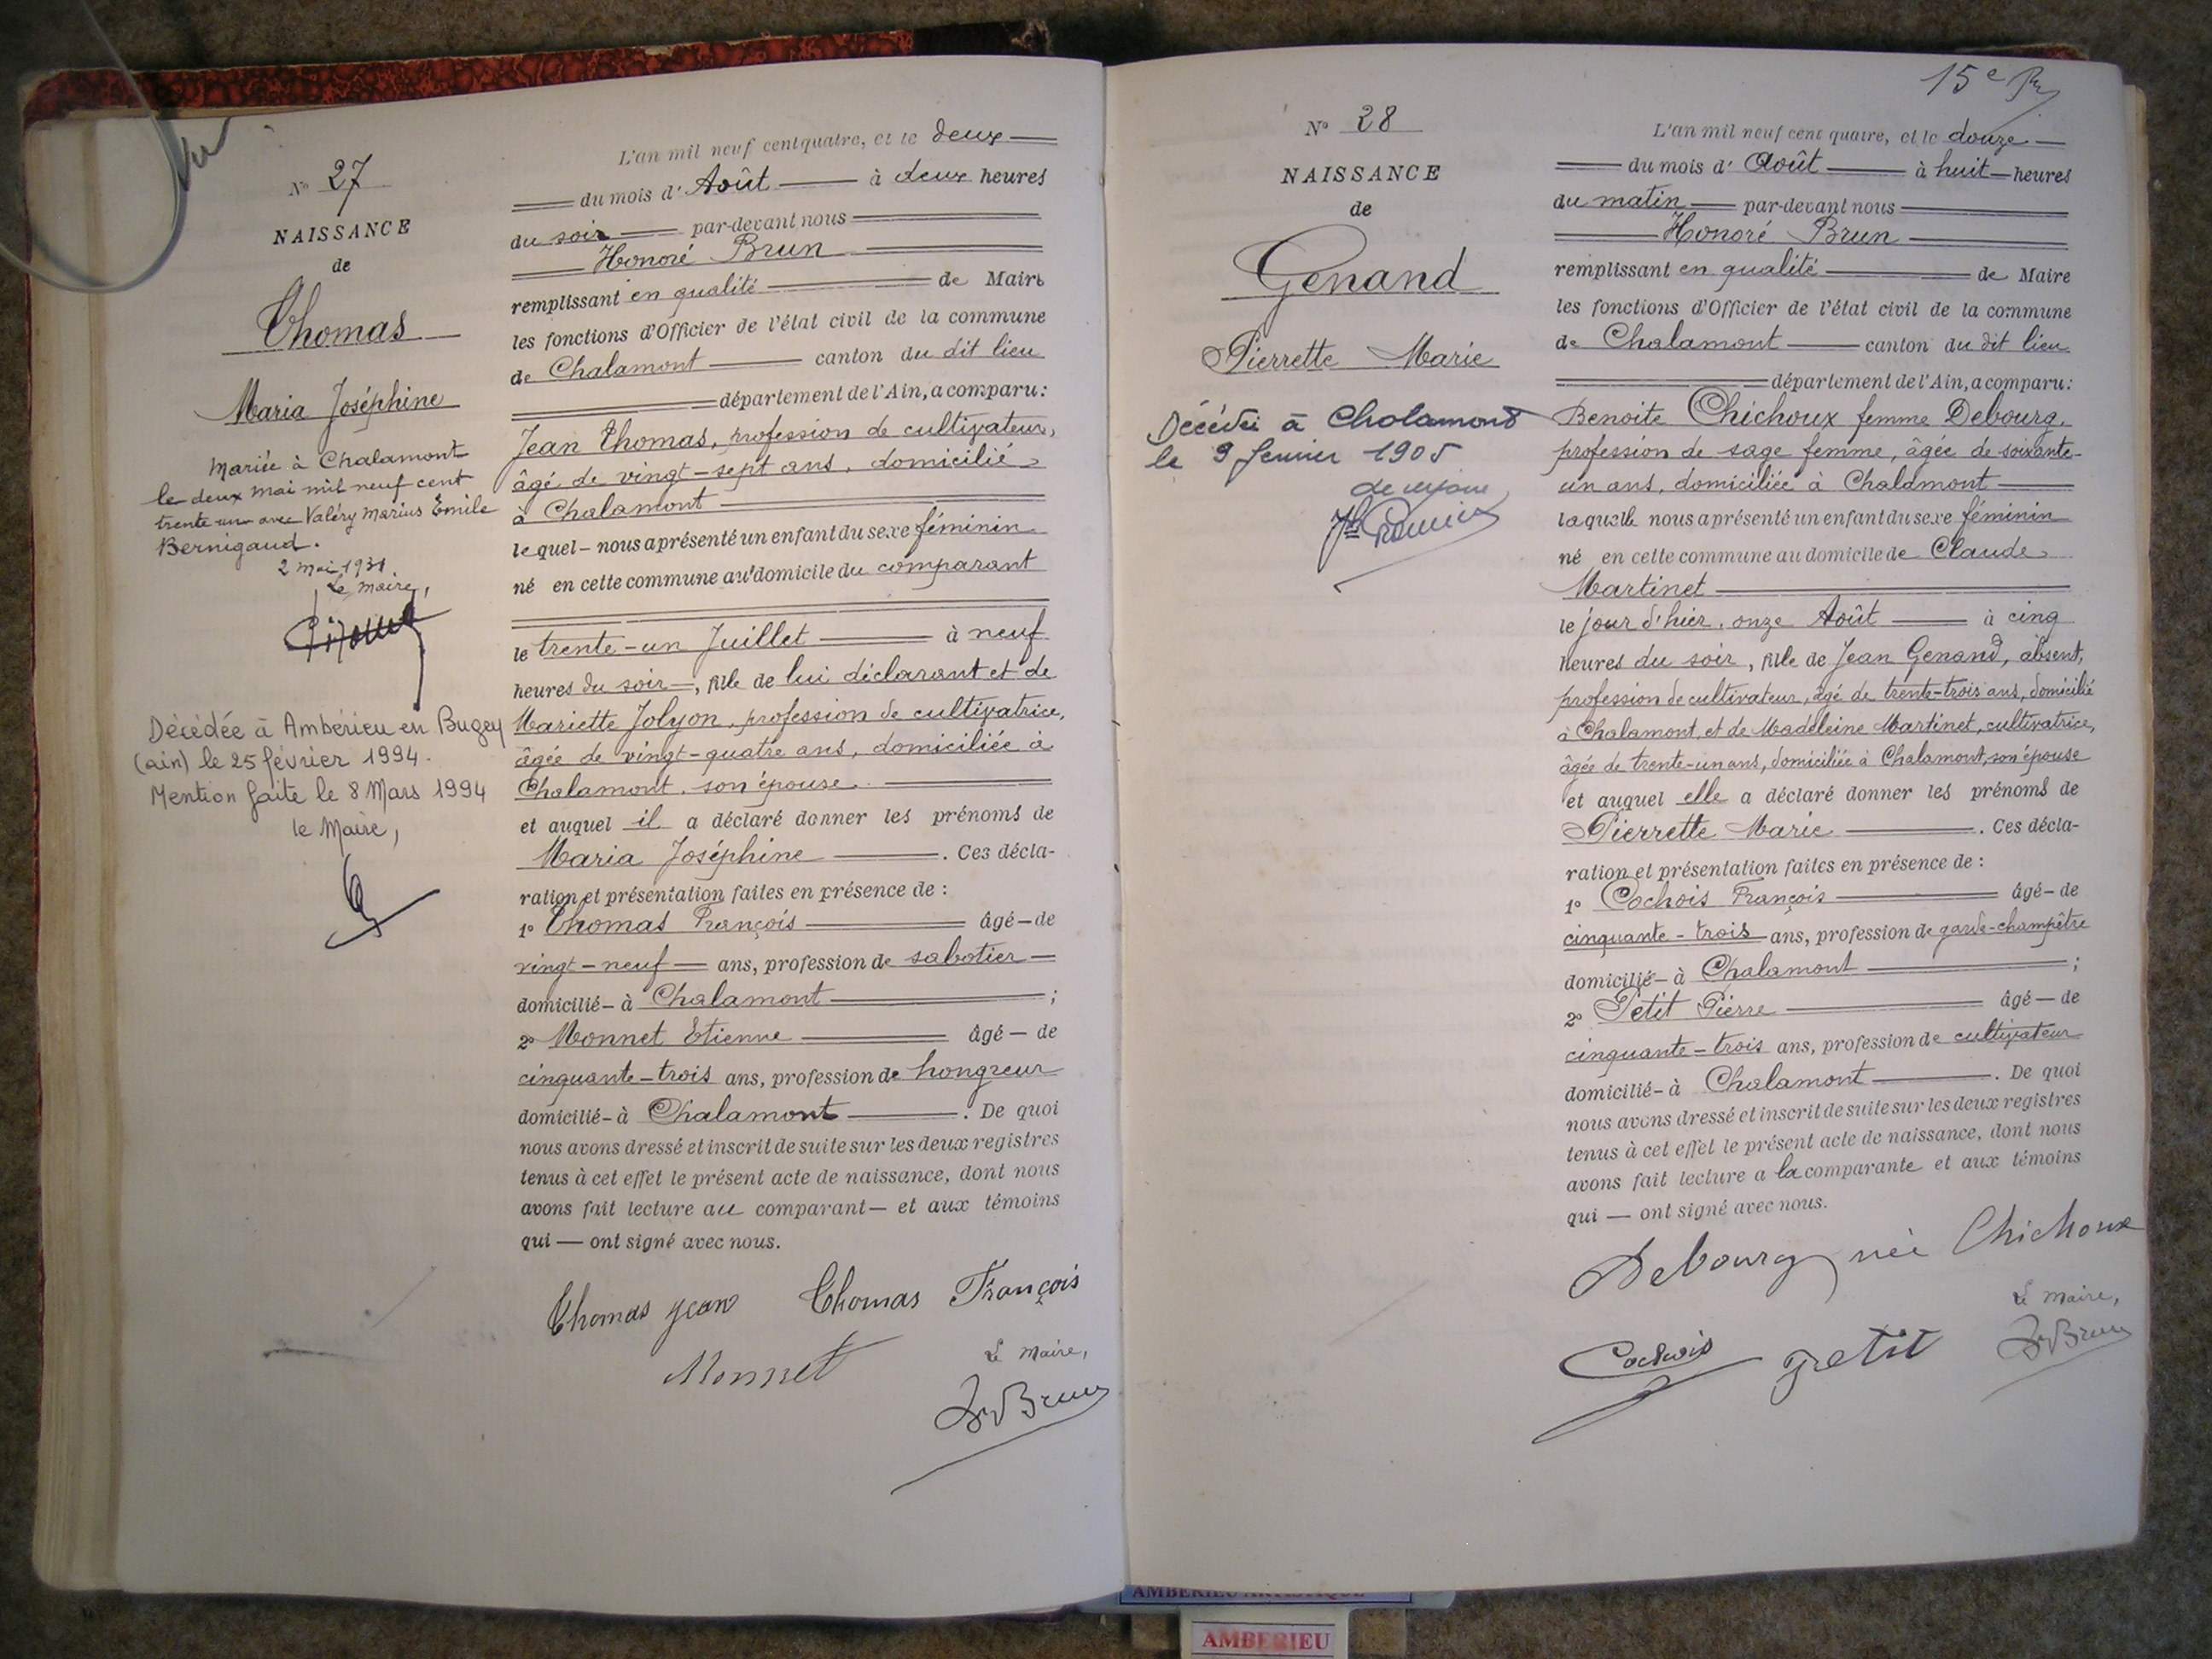 N° 27
NAISSANCE
de
Thomas
Maria Joséphine
Mariée à Chalamont
le deux mai mil neuf cent
trente un avec Valéry Marius Emile
Bernigaud.
2 mai 1931
Le maire,
Décédée à Ambérieu en Bugey
(ain) le 25 février 1994.
Mention faite le 8 Mars 1994
le Maire,
L'an mil neuf cent quatre, et le deux
du mois d' Août à deux heures
du soir par-devant nous
Honoré Brun
remplissant en qualité de Maire
les fonctions d'Officier de l'état civil de la commune
de Chalamont canton du dit lieu
département de l'Ain, a comparu:
Jean Thomas, profession de cultivateur,
âgé de vingt-sept ans, domicilié
à Chalamont
lequel nous a présenté un enfant du sexe féminin
né en cette commune au domicile du comparant
le trente-un Juillet à neuf
heures du soir, fille de lui déclarant et de
Mariette Jolyon, profession de cultivatrice,
âgée de vingt-quatre ans, domiciliée à
Chalamont, son épouse
et auquel il a déclaré donner les prénoms de
Maria Joséphine. Ces décla-
ration et présentation faites en présence de :
1° Thomas François âgé de
vingt-neuf ans, profession de sabotier
domicilié à Chalamont ;
2° Monnet Etienne âgé de
cinquante-trois ans, profession de hongreur
domicilié à Chalamont. De quoi
nous avons dressé et inscrit de suite sur les deux registres
tenus à cet effet le présent acte de naissance, dont nous
avons fait lecture au comparant et aux témoins
qui ont signé avec nous.
Thomas Jean Thomas François
Monnet
Le maire,
Brun
15e
N° 28
NAISSANCE
de
Genand
Pierrette Marie
Décédée à Chalamont
le 9 février 1905
L'an mil neuf cent quatre, et le douze
du mois d' Août à huit heures
du matin par-devant nous
Honoré Brun
remplissant en qualité de Maire
les fonctions d'Officier de l'état civil de la commune
de Chalamont canton du dit lieu
département de l'Ain, a comparu:
Benoite Chichoux femme Debourg,
profession de sage femme, âgée de soixante-
un ans, domiciliée à Chalamont
laquelle nous a présenté un enfant du sexe féminin
né en cette commune au domicile de Claude
Martinet
le jour d'hier, onze Août à cinq
heures du soir, fille de Jean Genand, absent,
profession de cultivateur, âgé de trente-trois ans, domicilié
à Chalamont, et de Madeleine Martinet, cultivatrice,
âgée de trente-un ans, domiciliée à Chalamont, son épouse
et auquel elle a déclaré donner les prénoms de
Pierrette Marie. Ces décla-
ration et présentation faites en présence de :
1° Cochois François âgé de
cinquante-trois ans, profession de garde-champêtre
domicilié à Chalamont ;
2° Petit Pierre âgé de
cinquante-trois ans, profession de cultivateur
domicilié à Chalamont. De quoi
nous avons dressé et inscrit de suite sur les deux registres
tenus à cet effet le présent acte de naissance, dont nous
avons fait lecture a la comparante et aux témoins
qui ont signé avec nous.
Debourg née Chichoux
Cochois petit
Le maire,
Brun
AMBERIEU ARTISTIQUE
AMBERIEU